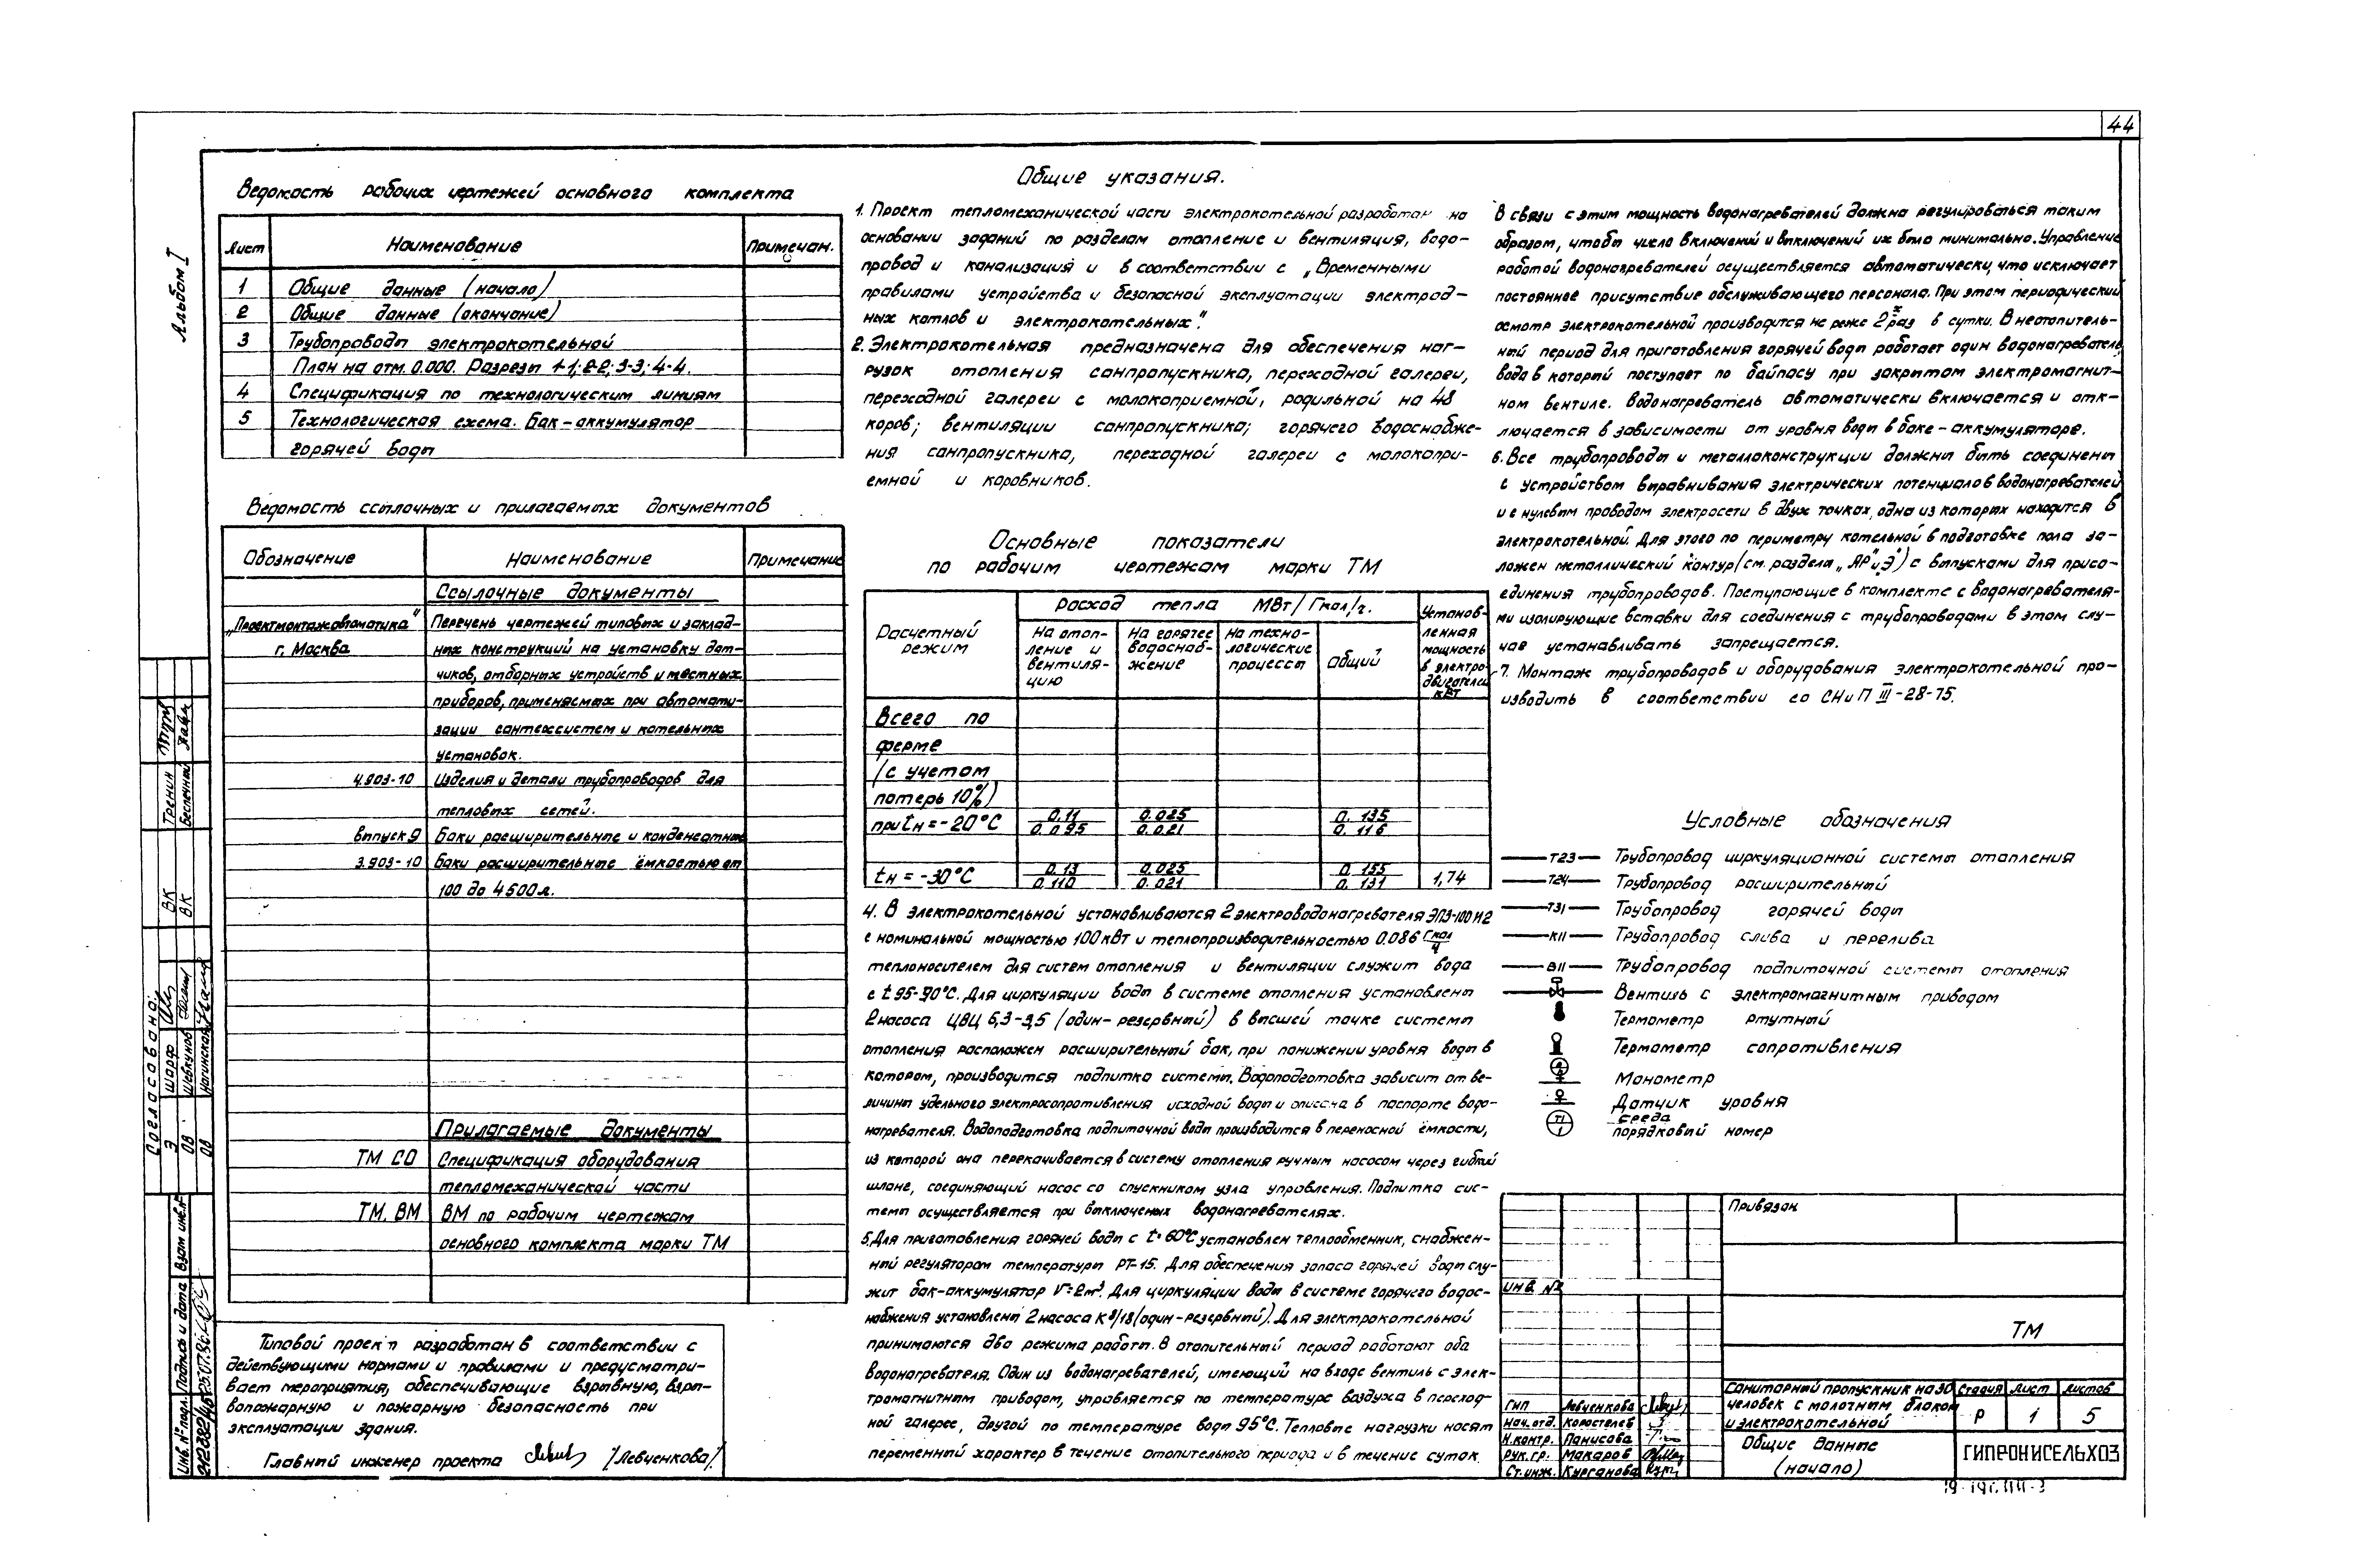 44
Альбом I
Ведомость рабочих чертежей основного комплекта
Лист Наименование Примечан.
1 Общие данные (начало)
2 Общие данные (окончание)
3 Трубопроводы электрокотельной
План на отм. 0.000. Разрезы 1-1; 2-2; 3-3; 4-4.
4 Спецификация по технологическим линиям
5 Технологическая схема. Бак-аккумулятор
горячей воды
Ведомость ссылочных и прилагаемых документов
Обозначение Наименование Примечание
Ссылочные документы
„Проектмонтажавтоматика" Перечень чертежей типовых и заклад-
г. Москва ных конструкций на установку дат-
чиков, отборных устройств и местных
приборов, применяемых при автомати-
зации сантехсистем и котельных
установок.
4.903-10 Изделия и детали трубопроводов для
тепловых сетей.
выпуск 9 Баки расширительные и конденсатные
3.903-10 Баки расширительные ёмкостью от
100 до 4500 л.
Прилагаемые документы
ТМ СО Спецификация оборудования
тепломеханической части
ТМ. ВМ ВМ по рабочим чертежам
основного комплекта марки ТМ
Типовой проект разработан в соответствии с
действующими нормами и правилами и предусматри-
вает мероприятия, обеспечивающие взрывную, взры-
вопожарную и пожарную безопасность при
эксплуатации здания.
Главный инженер проекта /Левченкова/
Общие указания.
1. Проект тепломеханической части электрокотельной разработан на
основании заданий по разделам отопление и вентиляция, водо-
провод и канализация и в соответствии с „Временными
правилами устройства и безопасной эксплуатации электрод-
ных котлов и электрокотельных".
2. Электрокотельная предназначена для обеспечения наг-
рузок отопления санпропускника, переходной галереи,
переходной галереи с молокоприемной, родильной на 48
коров; вентиляции санпропускника; горячего водоснабже-
ния санпропускника, переходной галереи с молокопри-
емной и коровников.
Основные показатели
по рабочим чертежам марки ТМ
Расчетный режим Расход тепла МВт/Гкал/ч. Установ-
ленная мощность в электро двигателей кВт
На отоп-
ление и
вентиля-
цию
На горячее
водоснаб-
жение
На техно-
логические
процессы
общий
Всего по
ферме
/с учетом
потерь 10%)
при tн = -20°С 0.11/0.095 0.025/0.021 0.135/0.116
tн = -30°С 0.13/0.110 0.025/0.021 0.155/0.131 1,74
4. В электрокотельной устанавливаются 2 электроводонагревателя ЭПЗ-100 И2
с номинальной мощностью 100 кВт и теплопроизводительностью 0.086 Гкал/ч
теплоносителем для систем отопления и вентиляции служит вода
с t 95-90°С. Для циркуляции воды в системе отопления установлены
2 насоса ЦВЦ 6,3-3,5 (один-резервный) в высшей точке системы
отопления расположен расширительный бак, при понижении уровня воды в
котором, производится подпитка системы. Водоподготовка зависит от ве-
личины удельного электросопротивления исходной воды и описана в паспорте водо-
нагревателя. Водоподготовка подпиточной воды производится в переносной ёмкости,
из которой она перекачивается в систему отопления ручным насосом через гибкий
шланг, соединяющий насос со спускником узла управления. Подпитка сис-
темы осуществляется при выключеных водонагревателях.
5. Для приготовления горячей воды с t=60°С установлен теплообменник, снабжен-
ный регулятором температуры РТ-15. Для обеспечения запаса горячей воды слу-
жит бак-аккумулятор V=2м³. Для циркуляции воды в системе горячего водос-
набжения установлены 2 насоса К 8/18 (один-резервный). Для электрокотельной
принимаются два режима работы. В отопительный период работают оба
водонагревателя. Один из водонагревателей, имеющий на входе вентиль с элек-
тромагнитным приводом, управляется по температуре воздуха в переход-
ной галерее, другой по температуре воды 95°С. Тепловые нагрузки носят
переменный характер в течение отопительного периода и в течение суток.
В связи с этим мощность водонагревателей должна регулироваться таким
образом, чтобы число включений и выключений их было минимально. Управление
работой водонагревателей осуществляется автоматически, что исключает
постоянное присутствие обслуживающего персонала. При этом периодический
осмотр электрокотельной производится не реже 2х раз в сутки. В неотопитель-
ный период для приготовления горячей воды работает один водонагреватель,
вода в который поступает по байпасу при закрытом электромагнит-
ном вентиле. Водонагреватель автоматически включается и отк-
лючается в зависимости от уровня воды в баке-аккумуляторе.
6. Все трубопроводы и металлоконструкции должны быть соединены
с устройством выравнивания электрических потенциалов водонагревателей
и с нулевым проводом электросети в двух точках, одна из которых находится в
электрокотельной. Для этого по периметру котельной в подготовке пола за-
ложен металлический контур (см. раздела „АР" и „Э") с выпусками для присо-
единения трубопроводов. Поступающие в комплекте с водонагревателя-
ми изолирующие вставки для соединения с трубопроводами в этом слу-
чае устанавливать запрещается.
7. Монтаж трубопроводов и оборудования электрокотельной про-
изводить в соответствии со СНиП III-28-75.
Условные обозначения
Т23 Трубопровод циркуляционной системы отопления
Т24 Трубопровод расширительный
Т31 Трубопровод горячей воды
К11 Трубопровод слива и перелива
В11 Трубопровод подпиточной системы отопления
Вентиль с электромагнитным приводом
Термометр ртутный
Термометр сопротивления
Манометр
Датчик уровня
Т1 среда
1 порядковый номер
Привязан
ИНВ. №
ТМ
ГИП Левченкова
Нач. отд. Коростелев
Н.контр. Панисова
Рук. гр. Макаров
Ст.инж. Курганова
Санитарный пропускник на 30
человек с молотным блоком
и электрокотельной
Стадия Лист Листов
Р 1 5
Общие данные
(начало)
ГИПРОНИСЕЛЬХОЗ
Согласовано:
Э Шарф ВК Тренин
ОВ Шевкунов ВК Беспечный
ОВ Нагинская
Инв. № подл. Подпись и дата Взам инв. №